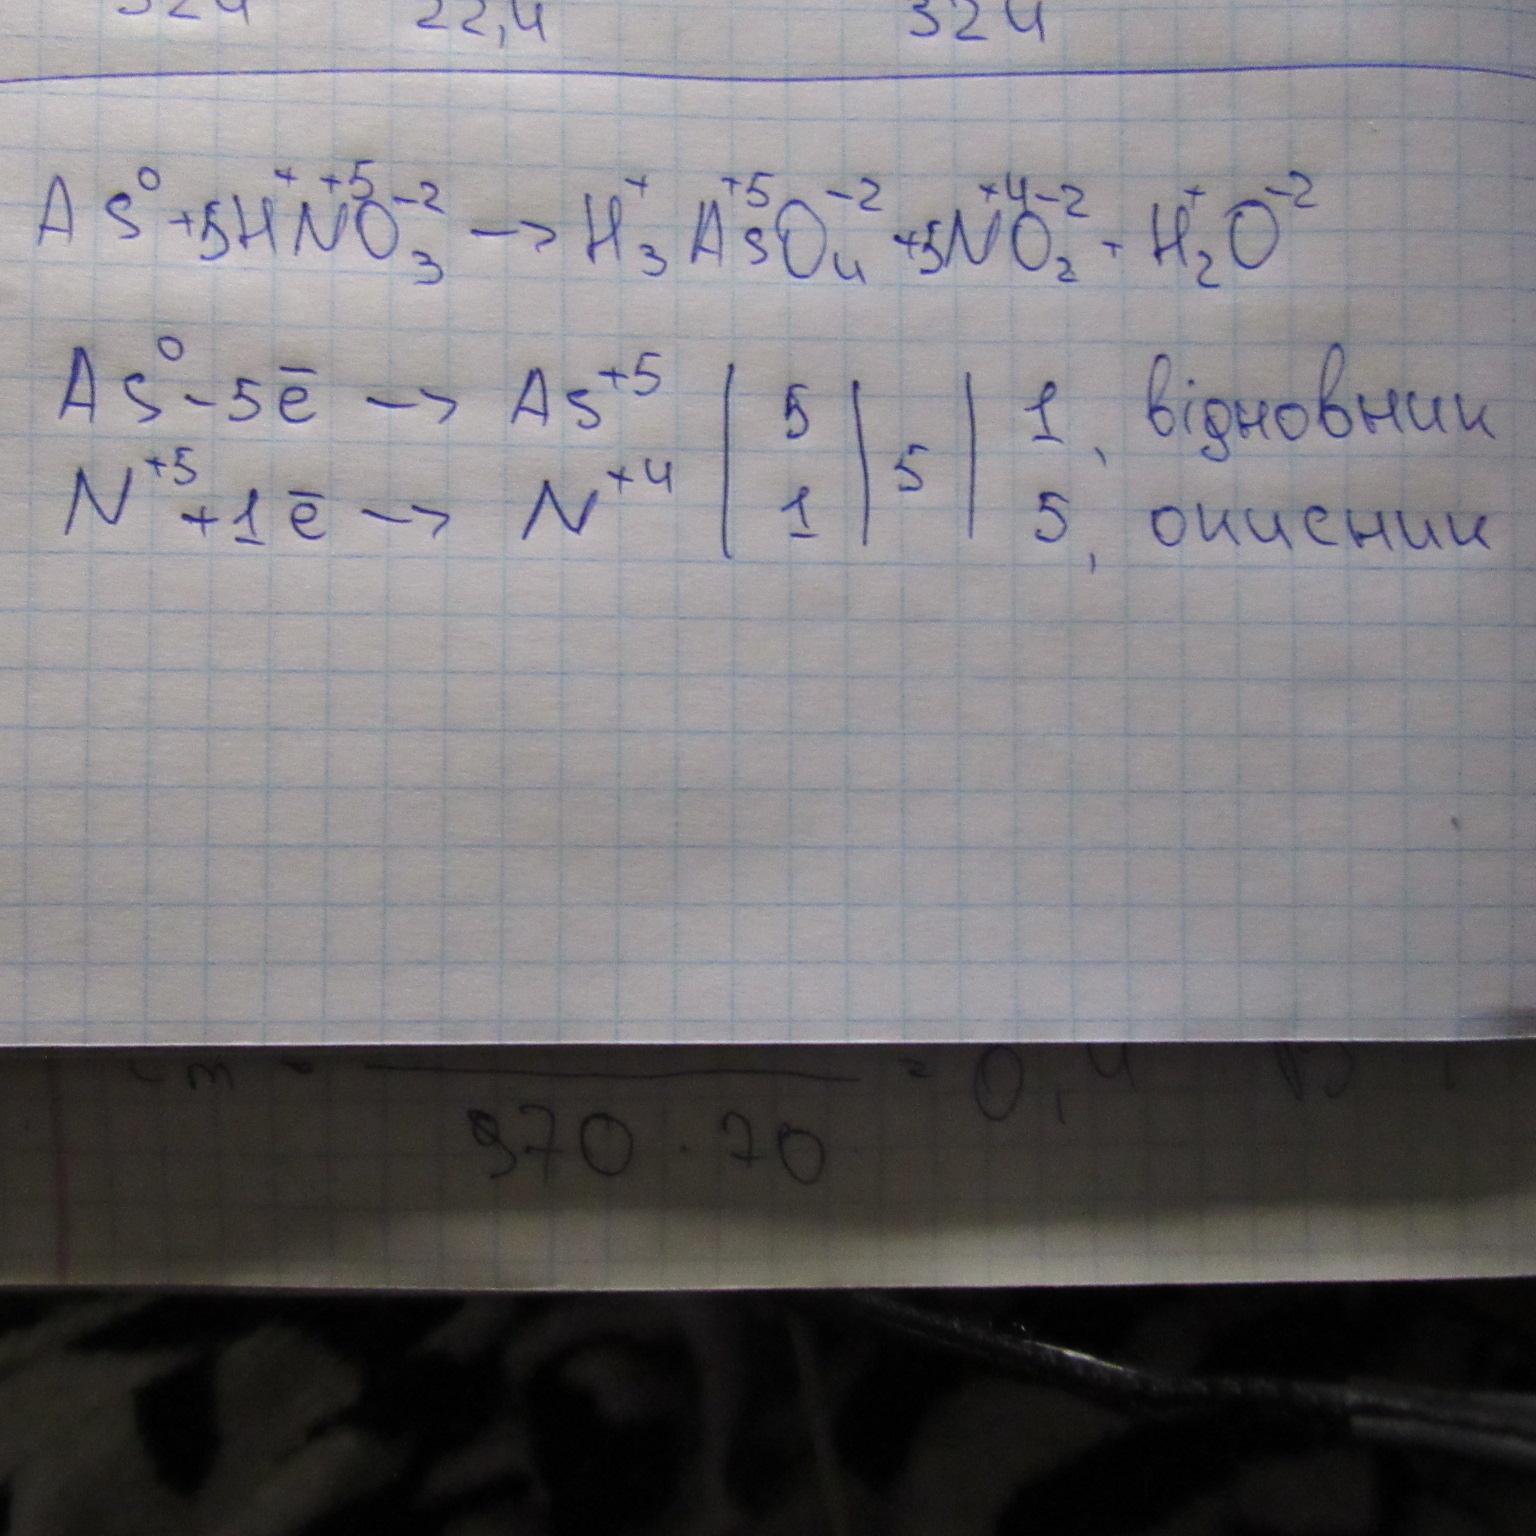 324 22,4 324
As⁰ + 5H⁺N⁺⁵O₃⁻² → H₃⁺As⁺⁵O₄⁻² + 5N⁺⁴O₂⁻² + H₂⁺O⁻²
As⁰ - 5ē → As⁺⁵ | 5 | 5 | 1, відновник
N⁺⁵ + 1ē → N⁺⁴ | 1 | | 5, окисник
= 0,4
970 · 70